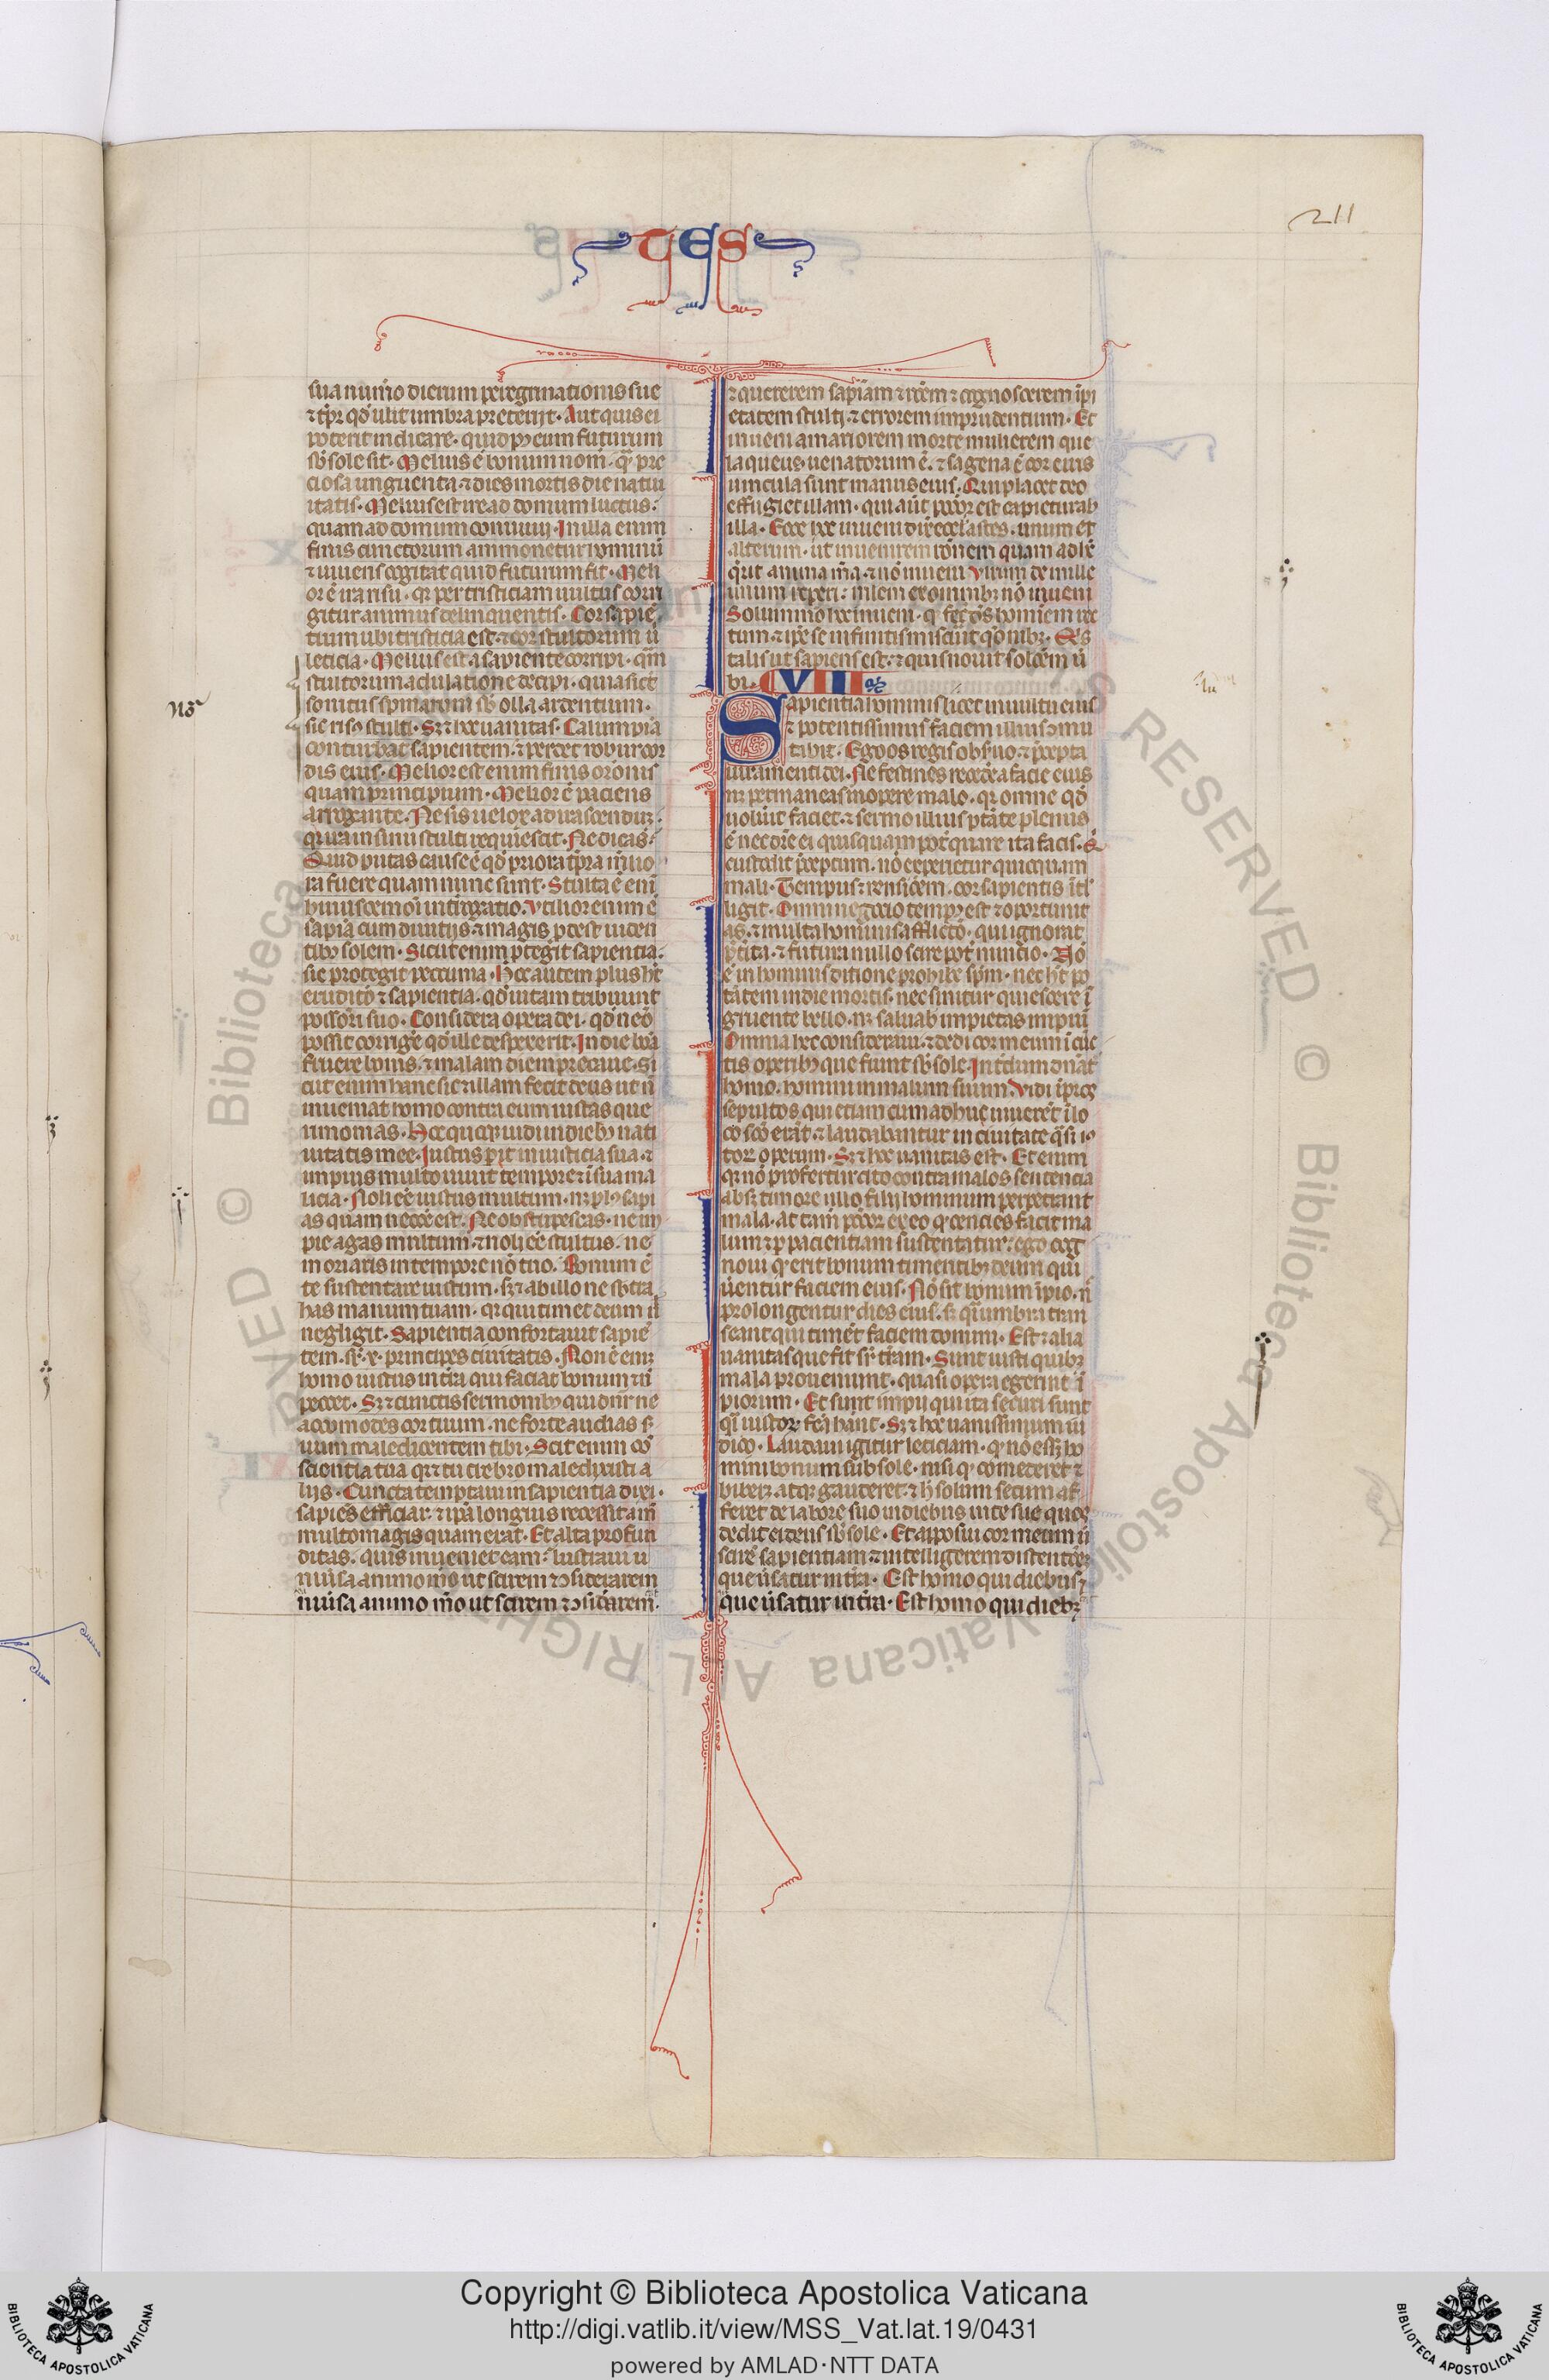 TES
211
sua numo dierum peregrinationis sue
⁊ tpr̄ qd̄ uelut umbra preterijt. Aut quis ei
poterit indicare. quid p9 eum futurum
sb̄ sole sit. Melius ē bonum nom̄. q̄ꝫ pre
ciosa unguenta. ⁊ dies mortis die natiui
itatis. Melius est ire ad domum luctus.
quam ad domum conuiuij. In illa enim
finis cunctorum ammonetur hominū
⁊ uiuens cogitat quid futurum sit. Meli
or ē ira risu. qꝛ per tristiciam uultus corri
gitur animus delinquentis. Cor sapiē
tium ubi tristicia est. ⁊ cor stultorum u
leticia. Melius est a sapiente corripi. q̄m
stultorum adulatione decipi. quia sicut
nō
sonitus spinarum sb̄ olla ardentium.
sic risꝰ stulti. Sꝫ ⁊ hec uanitas. Calumpnia
conturbat sapientem. ⁊ perdet robur cor
dis eius. Melior est enim finis orōnis
quam principium. Melior ē paciens
arrogante. Ne sis uelox ad irascenduꝫ.
qꝛ ira in sinu stulti requiescit. Ne dicas.
Quid putas cause ē qd̄ priora tp̄ra melio
ra fuere quam nunc sunt. Stulta ē enī
huiuscemōi int̄rogatio. Utilior enim ē
sapīa cum diuitijs. ⁊ magis pdest uiden
tibꝫ solem. Sicut enim ptegit sapientia.
sic protegit peccunia. Hoc autem plus ht̄
eruditō ⁊ sapientia. qd̄ uitam tribuunt
possōri suo. Considera opera dei. qd̄ neō
possit corrigē qd̄ ille despexerit. In die bōa
fruere bonis. ⁊ malam diem precaue. Si
cut enim hanc sic ⁊ illam fecit deus ut ñ
inueniat homo contra eum iustas que
rimonias. Hec quoqꝫ uidi in diebꝫ nati
uitatis mee. Iustus pit in iusticia sua. ⁊
impius multo uiuit tempore ⁊ ī sua ma
licia. Noli eē iustus multum. nꝫ plꝰ sapi
as quam necē est. Ne obstupescas. ne im
pie agas multum. ⁊ noli eē stultus. ne
moriaris in tempore nō tuo. Bonum ē
te sustentare iustum. sꝫ ⁊ ab illo ne sbtra
has manum tuam. qꝛ qui timet deum ñl
negligit. Sapientia confortauit sapiē
tem. sr̄. x. principes ciuitatis. Non ē eniꝫ
homo iustus in tr̄a qui faciat bonum ⁊ ñ
peccet. Sꝫ ⁊ cunctis sermonibꝫ qui dn̄r ne
accōmodes cor tuum. ne forte audias s
uum maledicentem tibi. Scit enim cō
scientia tua qꝛ ⁊ tu crebro maledixisti a
lijs. Cuncta temptaui in sapientia dixi.
sapiēs efficiar. ⁊ ipā longius recessit a m̄
multo magis quam erat. Et alta profun
ditas. quis inueniet eam. Lustraui u
niūsa animo mō ut scirem ⁊ ɔsiderarem
niūsa animo mō ut scirem ⁊ ɔsidarem.
⁊ quererem sapīam ⁊ rōem ⁊ cognoscerem īpi
etatem stulti. ⁊ errorem imprudentium. Et
inueni amariorem morte mulierem que
laqueus uenatorum ē. ⁊ sagena ē cor eius
uincula sunt manus eius. Qui placet deo
effugiet illam. qui aut̄ pccōr est capietur ab
illa. Ecce hoc inueni dix̄ ecclastes. unum et
alterum. ut inuenirem rōnem quam adhē
q̄rit anima m̄a. ⁊ nō inueni. Uirum de mille
unum reperi: mlrem ex omnibꝫ nō inueni
Solummō hoc inueni. qꝫ fec̄ ds̄ hominem rec
tum. ⁊ ipse se infinitis miscūit qōnibꝫ. Qis
talis ut sapiens est. ⁊ quis nouit solōem ū
bi. C VIII
Sapientia hominis lucet in uultu eius
⁊ potentissimus faciem illius ɔmu
tabit. Ego os regis obsuo. ⁊ p̄cepta
iuramenti dei. Ne festines recedēa facie eius
nꝫ permaneas in opere malo. qꝛ omne qd̄
uoluīt faciet. ⁊ sermo illius ptāte plenus
ē nec dicē ei quisquam pōt quare ita facis. Q
custodit p̄ceptum. nō experietur quicquam
mali. Tempus ⁊ rensiōem. cor sapientis ītl
ligit. Omni negocio tempꝰ est ⁊ oportunit
as. ⁊ multa hominis afflictō. qui ignorat
p̄t̄ita. ⁊ futura nullo scire pōt nuncio. Nō
ē in hominis ditione prohibē sp̄m. nec ht̄ po
tātem in die mortis. nec sinitur quiescere ī
gruente bello. nꝫ saluab impietas impiū
Omnia hec consideraui. ⁊ dedi cor meum ī cūc
tis operibꝫ que fiunt sb̄ sole. Int̄dum dn̄at
homo. homini in malum suum. Uidi īpios
sepultos qui etiam cum adhuc uiuerēt ī lo
co scō erāt. ⁊ laudabantur in ciuitate q̄si iꝰ
torꝫ operum. Sꝫ ⁊ hec uanitas est. Et enim
qꝛ nō profertur cito contra malos sentencia
absqꝫ timore ullo filij hominum perpetrant
mala. At tam̄ pccōr ex eo qꝫ cencies facit ma
lum ⁊ p pacientiam sustentatur. ego cog
noui qꝫ erit bonum timentibꝫ deum qui
ūentur faciem eius. Nō sit bonum īpio. ñ
prolongentur dies eius. sꝫ q̄si umbra tran
seant qui timēt faciem domini. Est ⁊ alia
uanitas que fit sr̄ tr̄am. Sunt iusti quibꝫ
mala proueniunt. quasi opera egerint ī
piorum. Et sunt impij qui ita securi sunt
q̄si iustorꝫ fc̄a hānt. Sꝫ ⁊ hoc uanissimum iu
dico. Laudaui igitur leticiam. qꝫ nō esset ho
mini bonum sub sole. nisi qꝫ comederet ⁊
biberꝫ atqꝫ gauderet. ⁊ h̄ solum secum af
feret de labore suo in diebus uite sue quos
dedit ei deus sb̄ sole. Et apposui cor meum ū
scirē sapientiam ⁊ intelligerem distentōeꝫ
que ūsatur in tr̄a. Est homo qui diebus ⁊
que ūsatur in tr̄a. Est homo qui diebꝫ
Copyright © Biblioteca Apostolica Vaticana
http://digi.vatlib.it/view/MSS_Vat.lat.19/0431
powered by AMLAD·NTT DATA
BIBLIOTECA APOSTOLICA VATICANA
BIBLIOTECA APOSTOLICA VATICANA